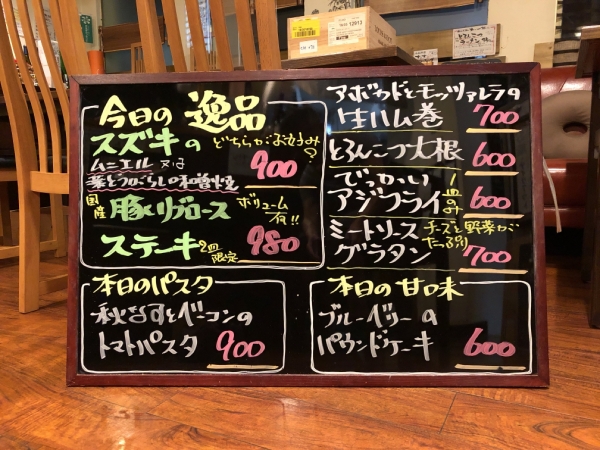 今日の 逸品
スズキの どちらがお好み?
ムニエル 又は
葉とうがらしの味噌焼 900
国産 豚リブロース ボリューム有!!
ステーキ 2皿限定 980
本日のパスタ
秋なすとベーコンの
トマトパスタ 900
アボカドとモッツァレラの
生ハム巻 700
とろんこつ大根 600
でっかい 1皿のみ
アジフライ 600
ミートソース チーズと野菜がたっぷり
グラタン 700
本日の甘味
ブルーベリーの
パウンドケーキ 600
12913